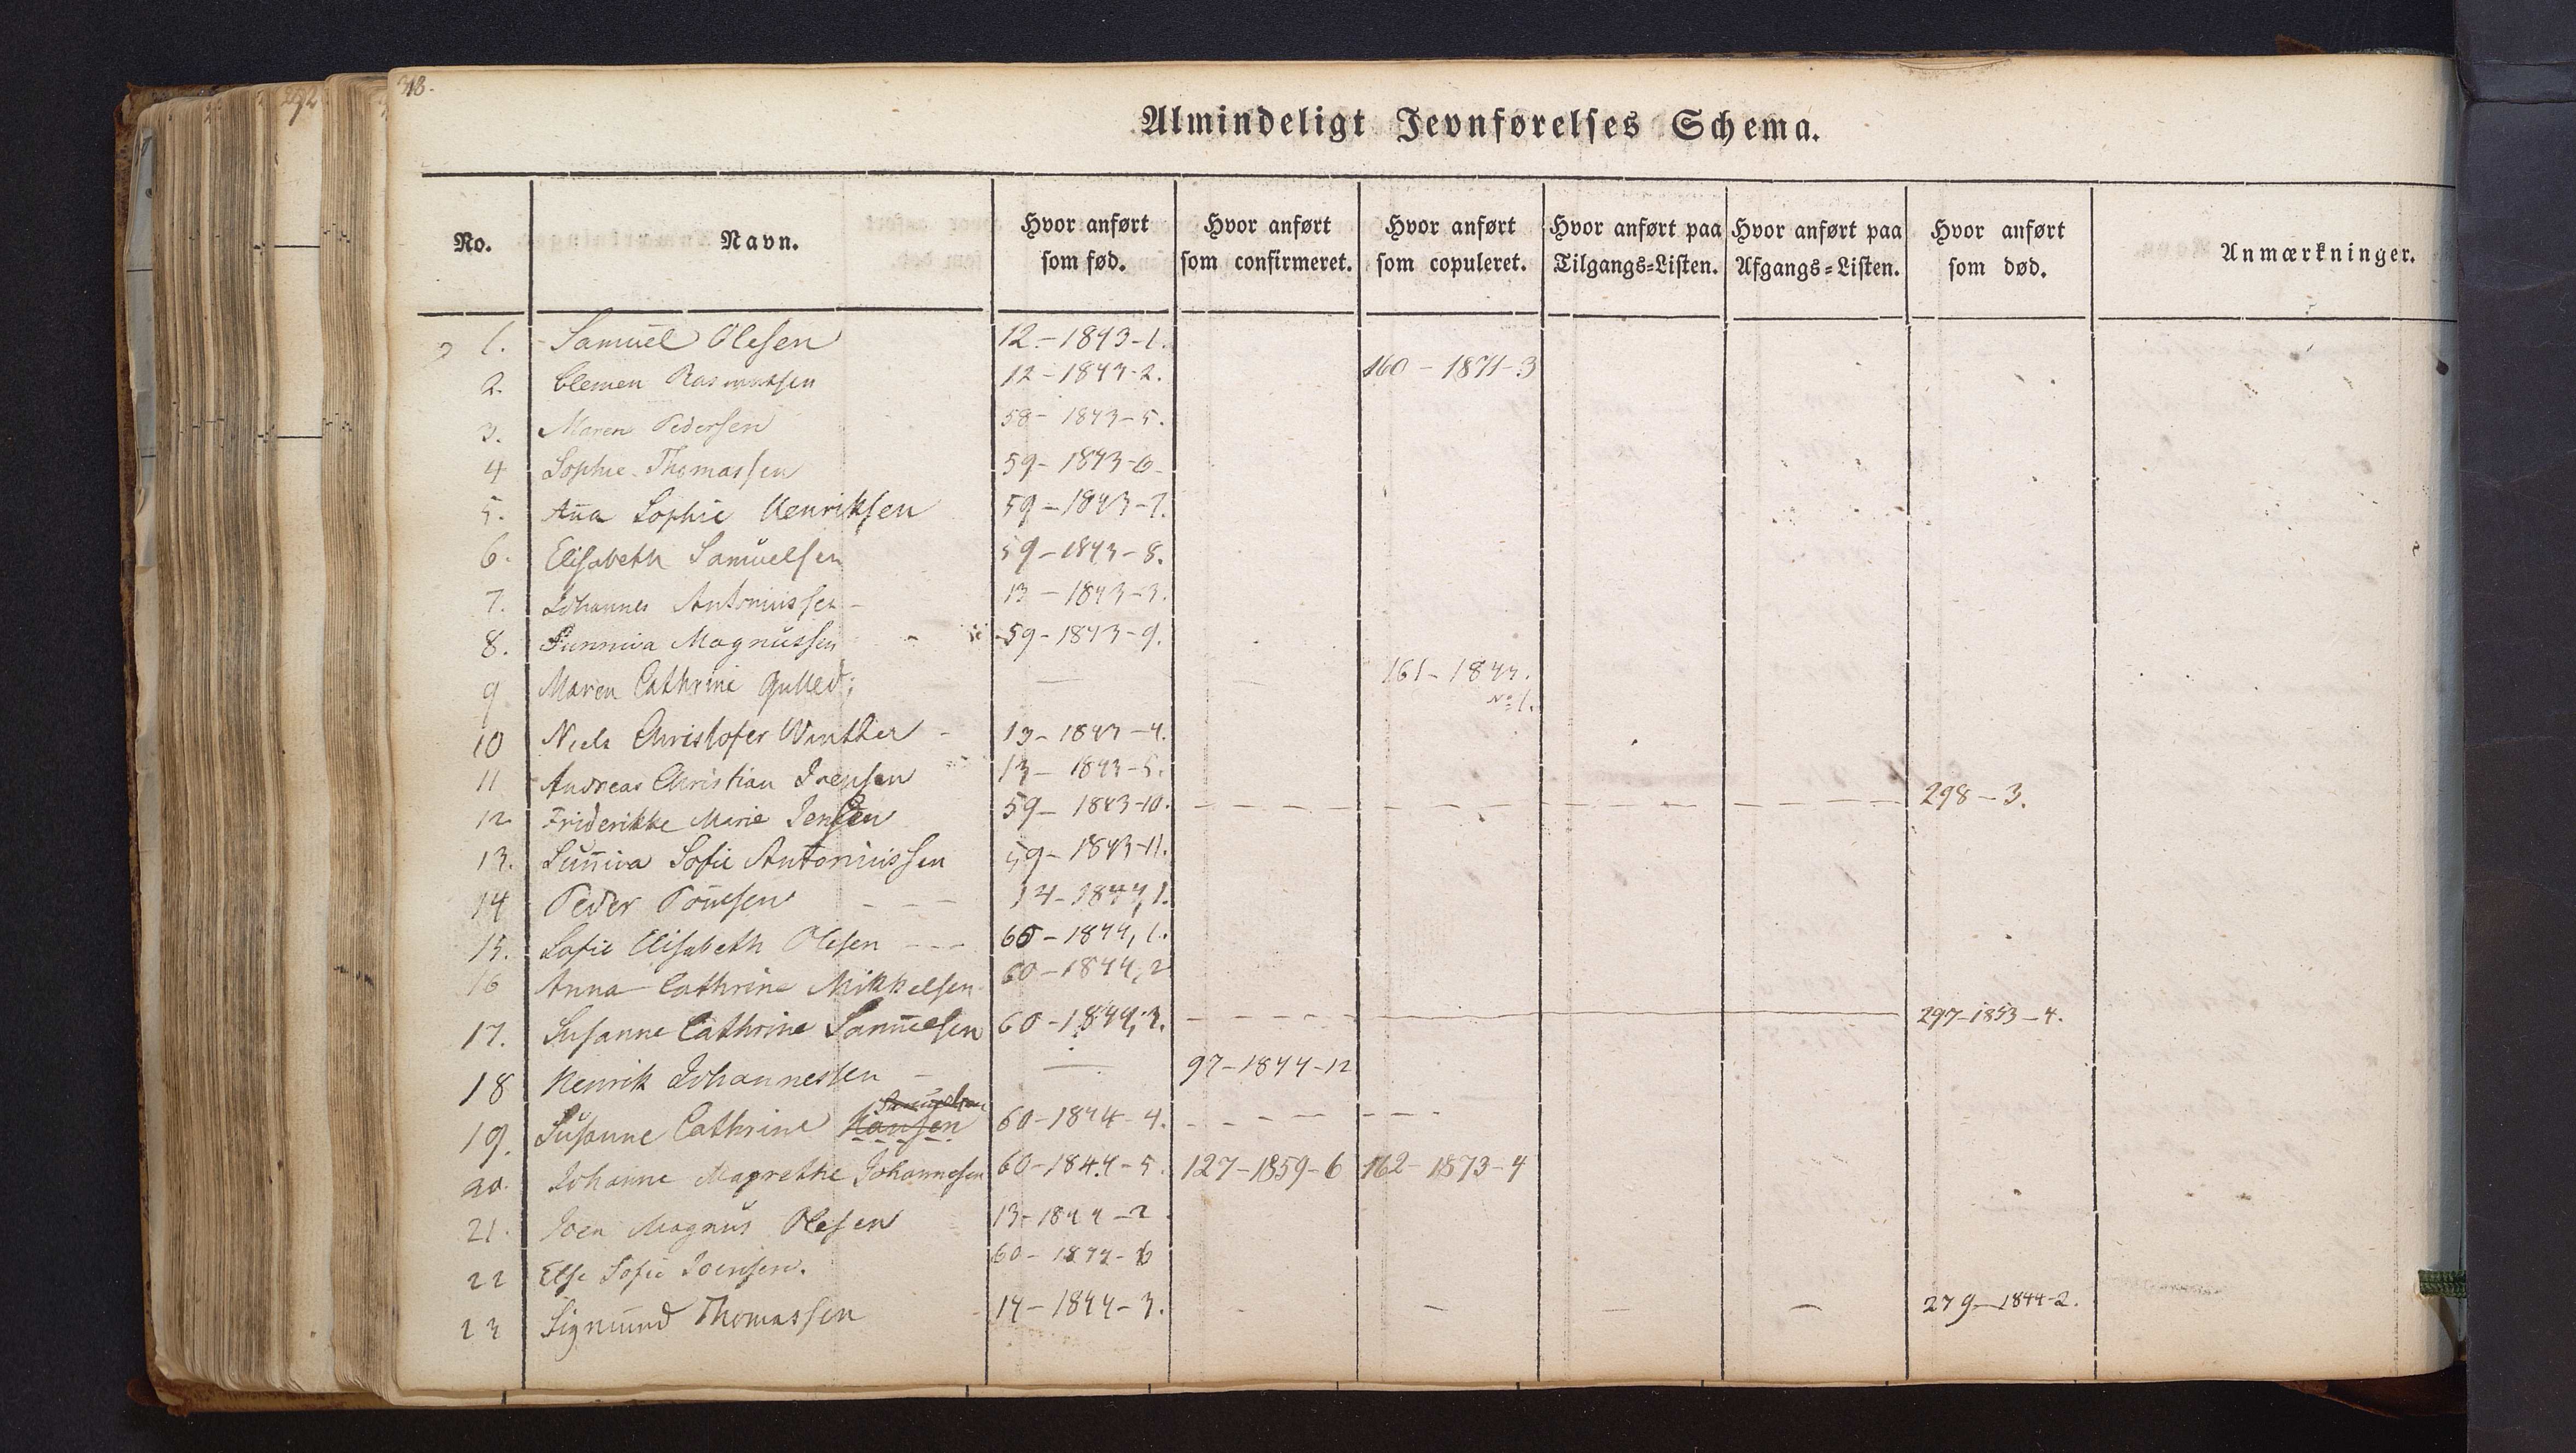 318.
Almindeligt Jevnførelses Schema.
No. Navn. Hvor anført som fød. Hvor anført som confirmeret. Hvor anført som copuleret. Hvor anført paa Tilgangs-Listen. Hvor anført paa Afgangs-Listen. Hvor anført som død. Anmærkninger.
1. Samuel Olesen 12-1843-1.
2. Clemen Rasmussen 12-1843-2. 160-1871-3
3. Maren Pedersen 58-1843-5.
4 Sophie Thomassen 59-1843-6
5. Anna Sophie Henriksen 59-1843-7.
6. Elisabeth Samuelsen 59-1843-8.
7. Johannes Antoniussen 13-1843-3.
8. Sunniva Magnussen 59-1843-9.
9 Maren Cathrine Gulled; — — 161-1844. No 1.
10 Niels Christofer Winther 13-1843-4.
11 Andreas Christian Joensen 13-1843-5.
12 Friderikke Marie Jensen 59-1843-10. 298-3.
13. Sunniva Sofie Antoniussen 59-1843-11.
14 Peder Pouesen 14-1844,1.
15. Sofie Elisabeth Olesen 60-1844,1.
16 Anna Cathrine Mikkelsen 60-1844,2
17. Susanne Cathrine Samuelsen 60-1844,3. 297-1853-4.
18 Henrik Johannessen — 97-1844-12
Samuelsen
19. Susanne Cathrine Hansen 60-1844-4.
20. Johanne Magrethe Johannesen 60-1844-5. 127-1859-6 162-1873-4
21. Joen Magnus Olesen 13-1844-2
22 Else Sofie Joensen. 60-1844-6
23 Sigmund Thomassen 14-1844-3. - - - - 279-1844-2.